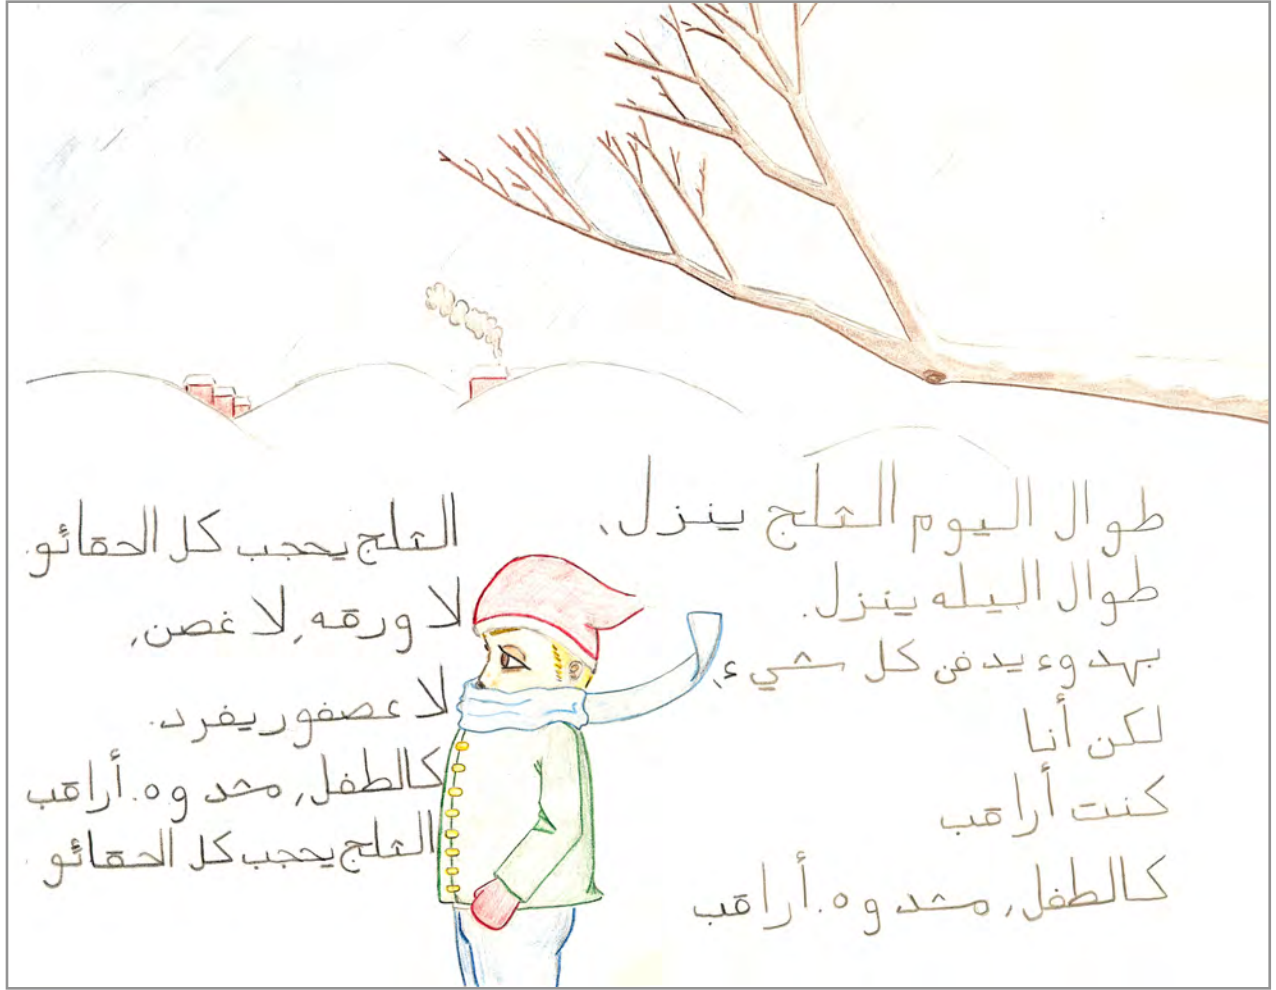 طوال اليوم الثلج ينزل،
طوال اليله ينزل.
بهدوء يدفن كل شيء،
لكن أنا
كنت أراقب
كالطفل، مشدوه. أراقب
الثلج يحجب كل الحقائق.
لا ورقه، لا غصن،
لا عصفور يغرد.
كالطفل، مشدوه. أراقب
الثلج يحجب كل الحقائق.